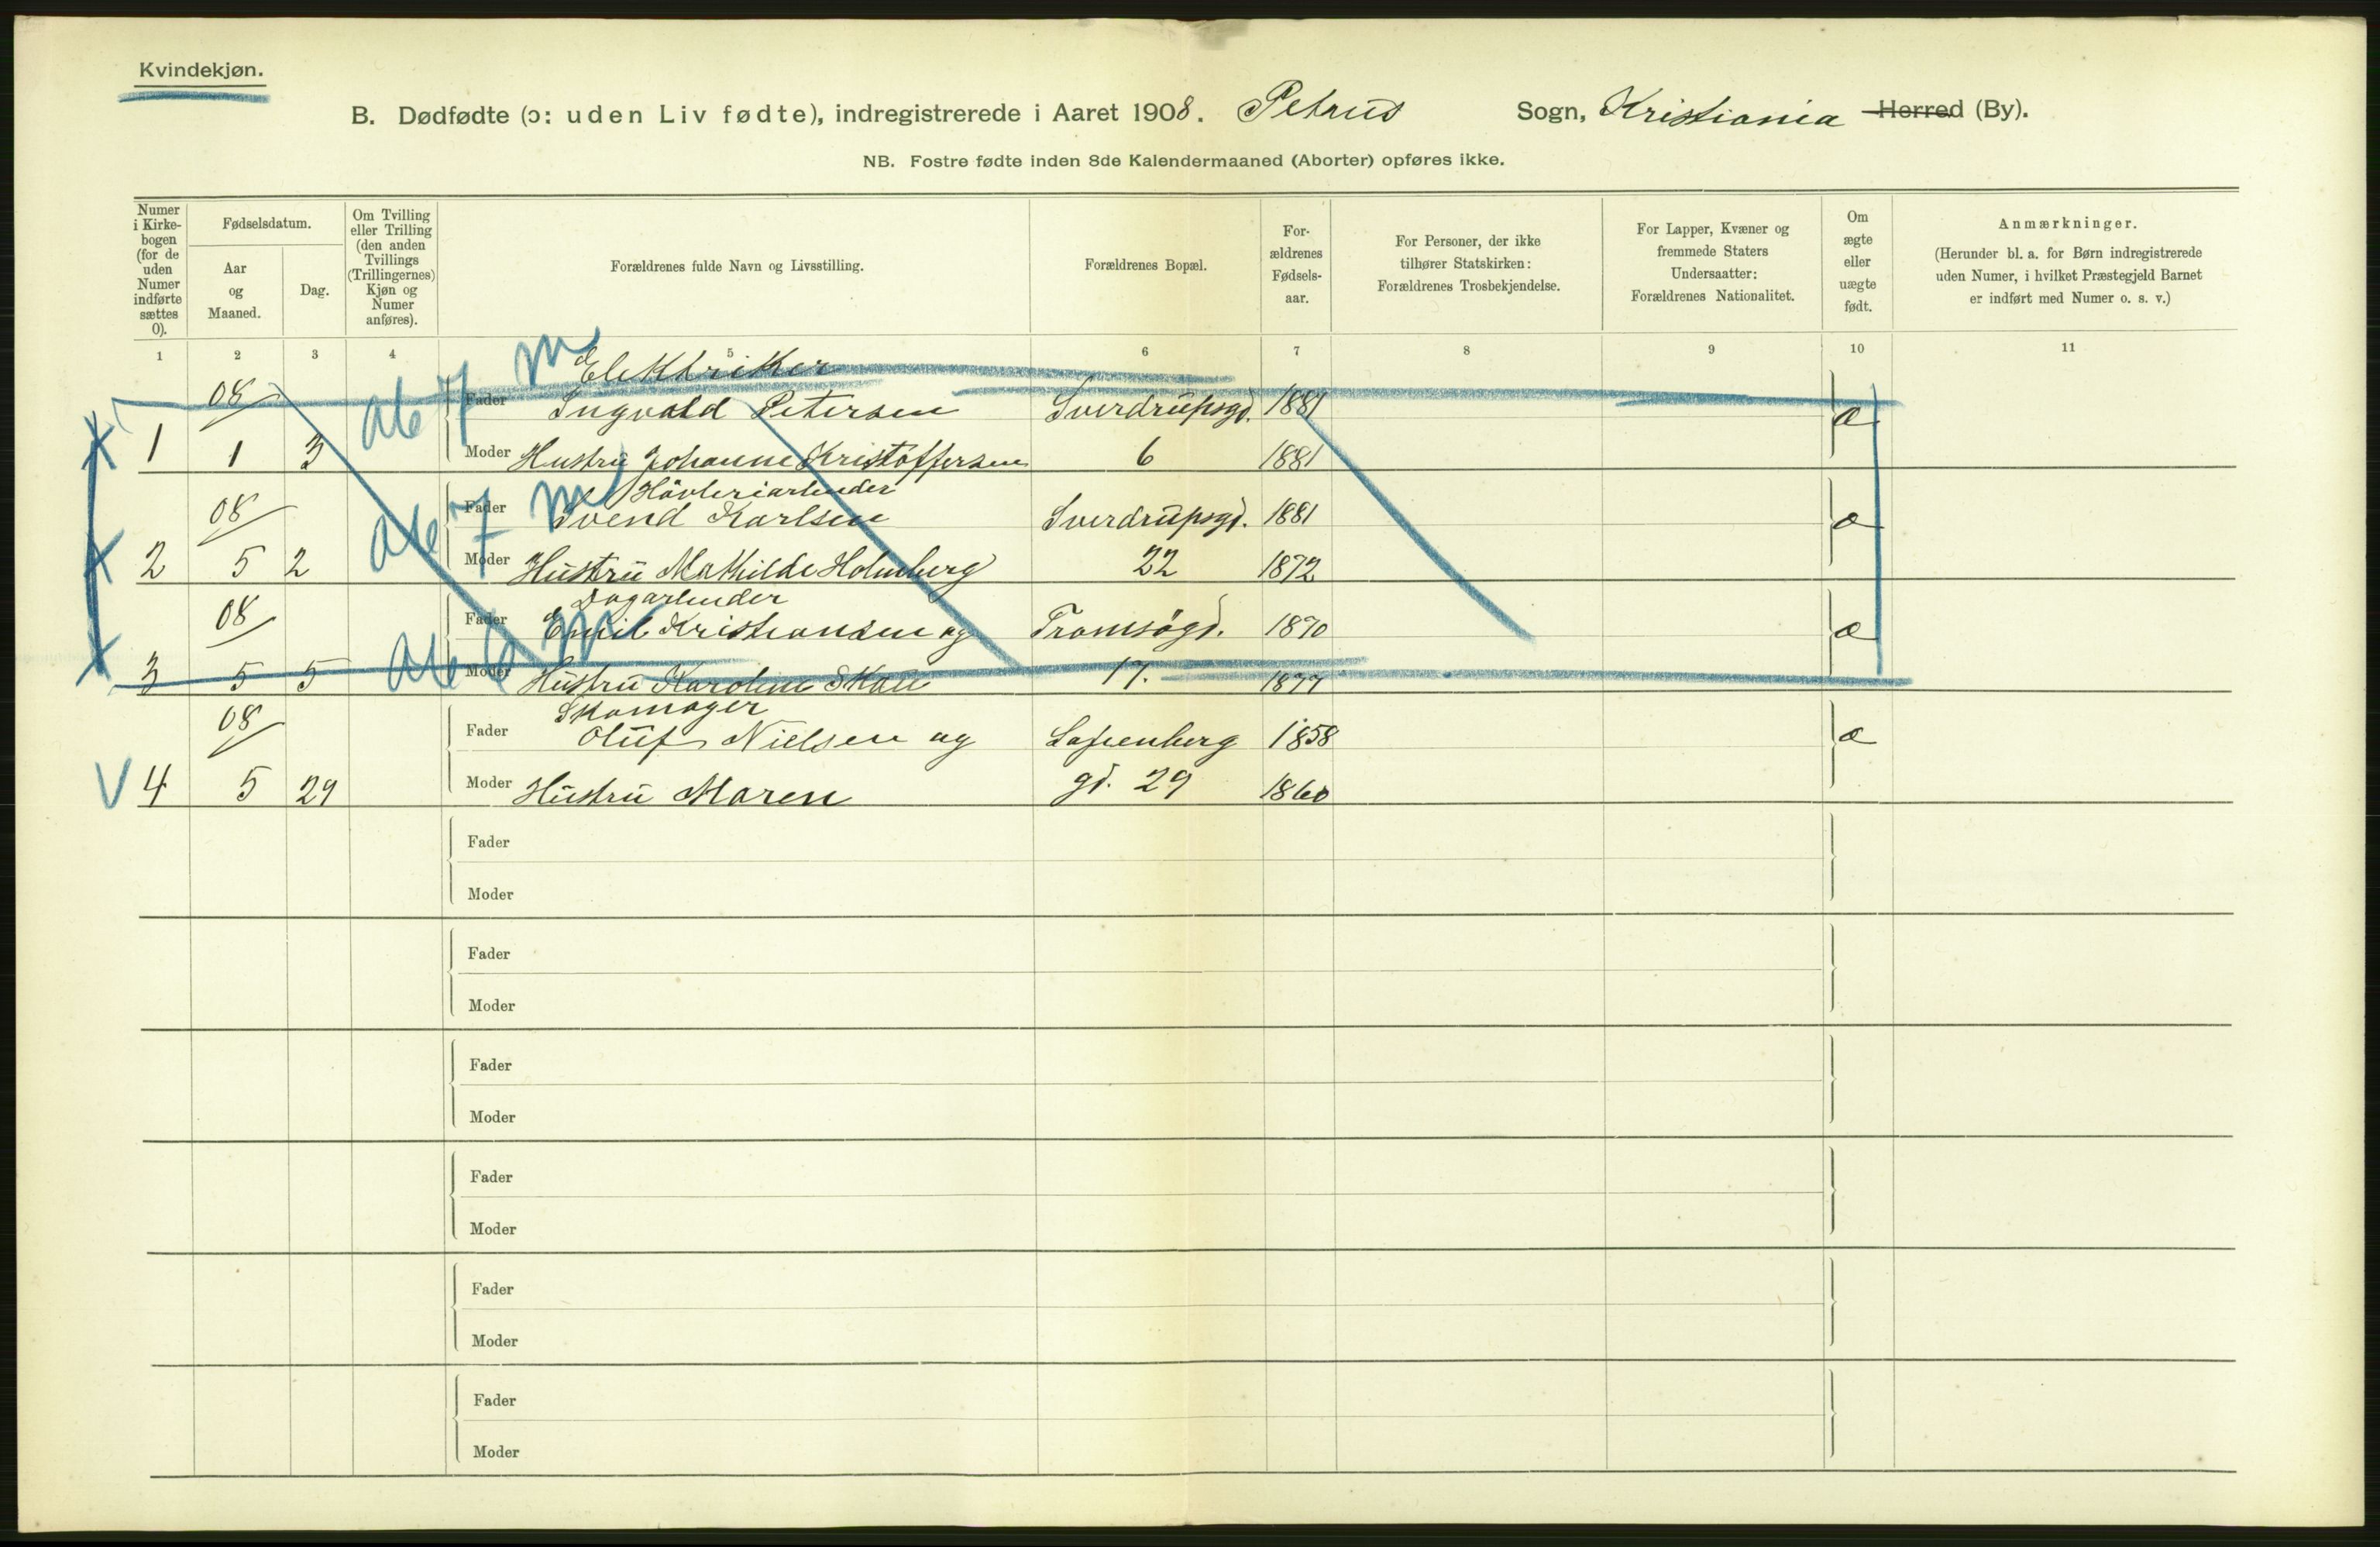 Kvindekjøn.
B. Dødfødte (ɔ: uden Liv fødte), indregistrerede i Aaret 1908. Petrus Sogn, Kristiania Herred (By).
NB. Fostre fødte inden 8de Kalendermaaned (Aborter) opføres ikke.
Numer i Kirke-bogen (for de uden Numer indførte sættes 0).
Fødselsdatum.
Aar og Maaned.
Dag.
Om Tvilling eller Trilling (den anden Tvillings (Trillingernes) Kjøn og Numer anføres).
Forældrenes fulde Navn og Livsstilling.
Forældrenes Bopæl.
For-ældrenes Fødsels-aar.
For Personer, der ikke tilhører Statskirken: Forældrenes Trosbekjendelse.
For Lapper, Kvæner og fremmede Staters Undersaatter: Forældrenes Nationalitet.
Om ægte eller uægte født.
Anmærkninger.
(Herunder bl. a. for Børn indregistrerede uden Numer, i hvilket Præstegjeld Barnet er indført med Numer o. s. v.)
1 2 3 4 5 6 7 8 9 10 11
m Elektriker
08 Fader Ingvald Petersen Sverdrupsgd. 1881 æ
1 1 3 Moder Hustru Johanne Kristoffersen 6 1881
m Høvleriarbeider
08 Fader Svend Karlsen Sverdrupsgd. 1881 æ
2 5 2 Moder Hustru Mathilde Holmberg 22 1872
Dagarbeider
08 Fader Emil Kristiansen og Tromsøgd. 1870 æ
3 5 5 Moder Hustru Karoline Skau 17. 1877
Skomager
08 Fader Oluf Nielsen og Sofienberg 1858 æ
V 4 5 29 Moder Hustru Maren gd. 29 1860
Fader
Moder
Fader
Moder
Fader
Moder
Fader
Moder
Fader
Moder
Fader
Moder